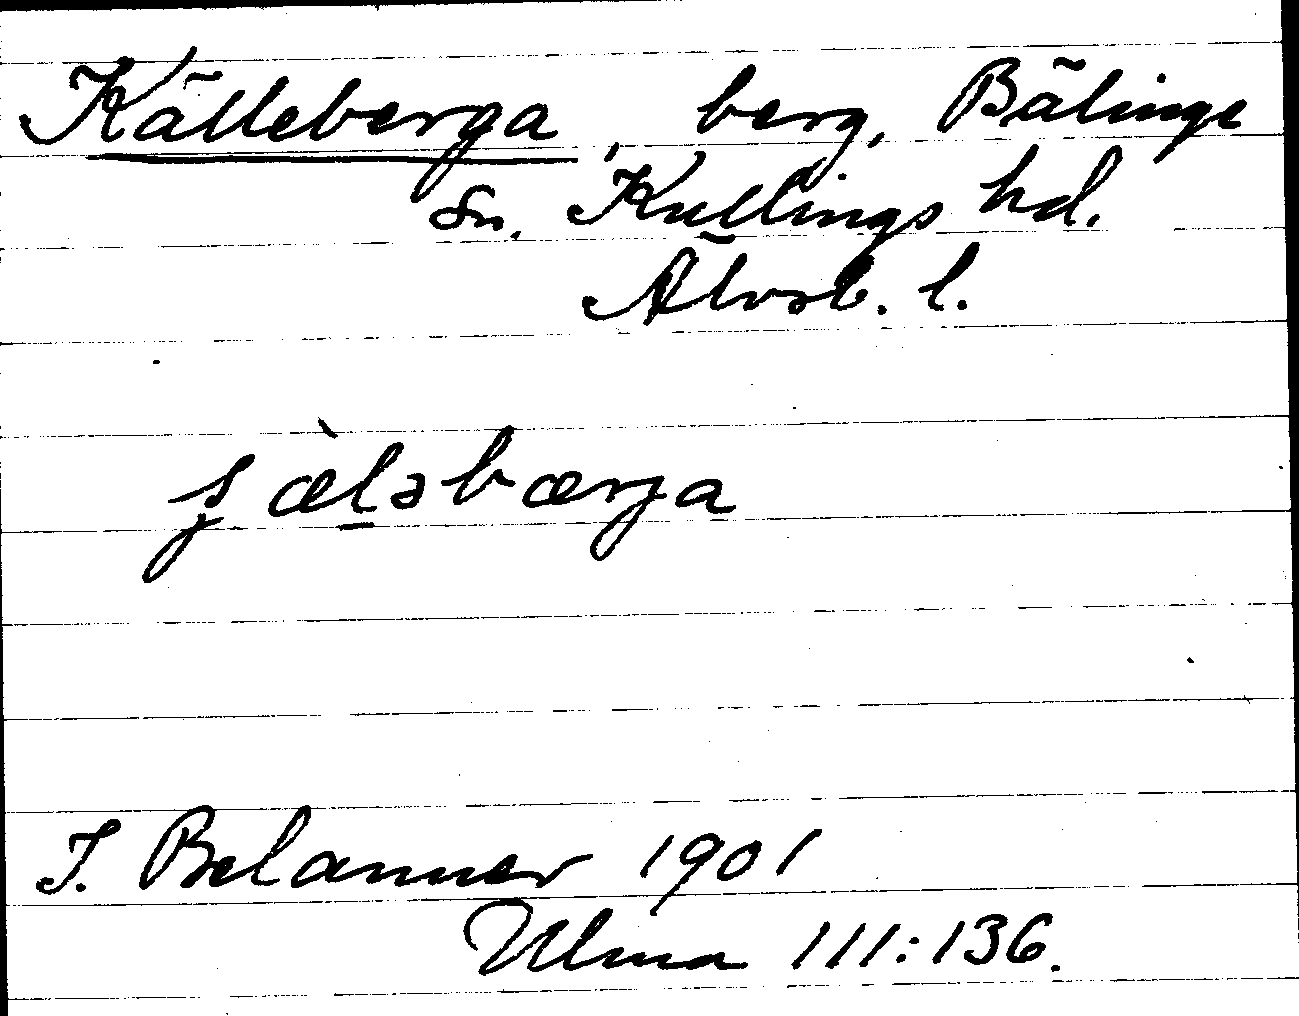 Källeberga, berg, Bälinge
sn. Kullings hd.
Älvsb. l.
ʂæ̀l̲əbærja
J. Belanner 1901
Ulma 111:136.